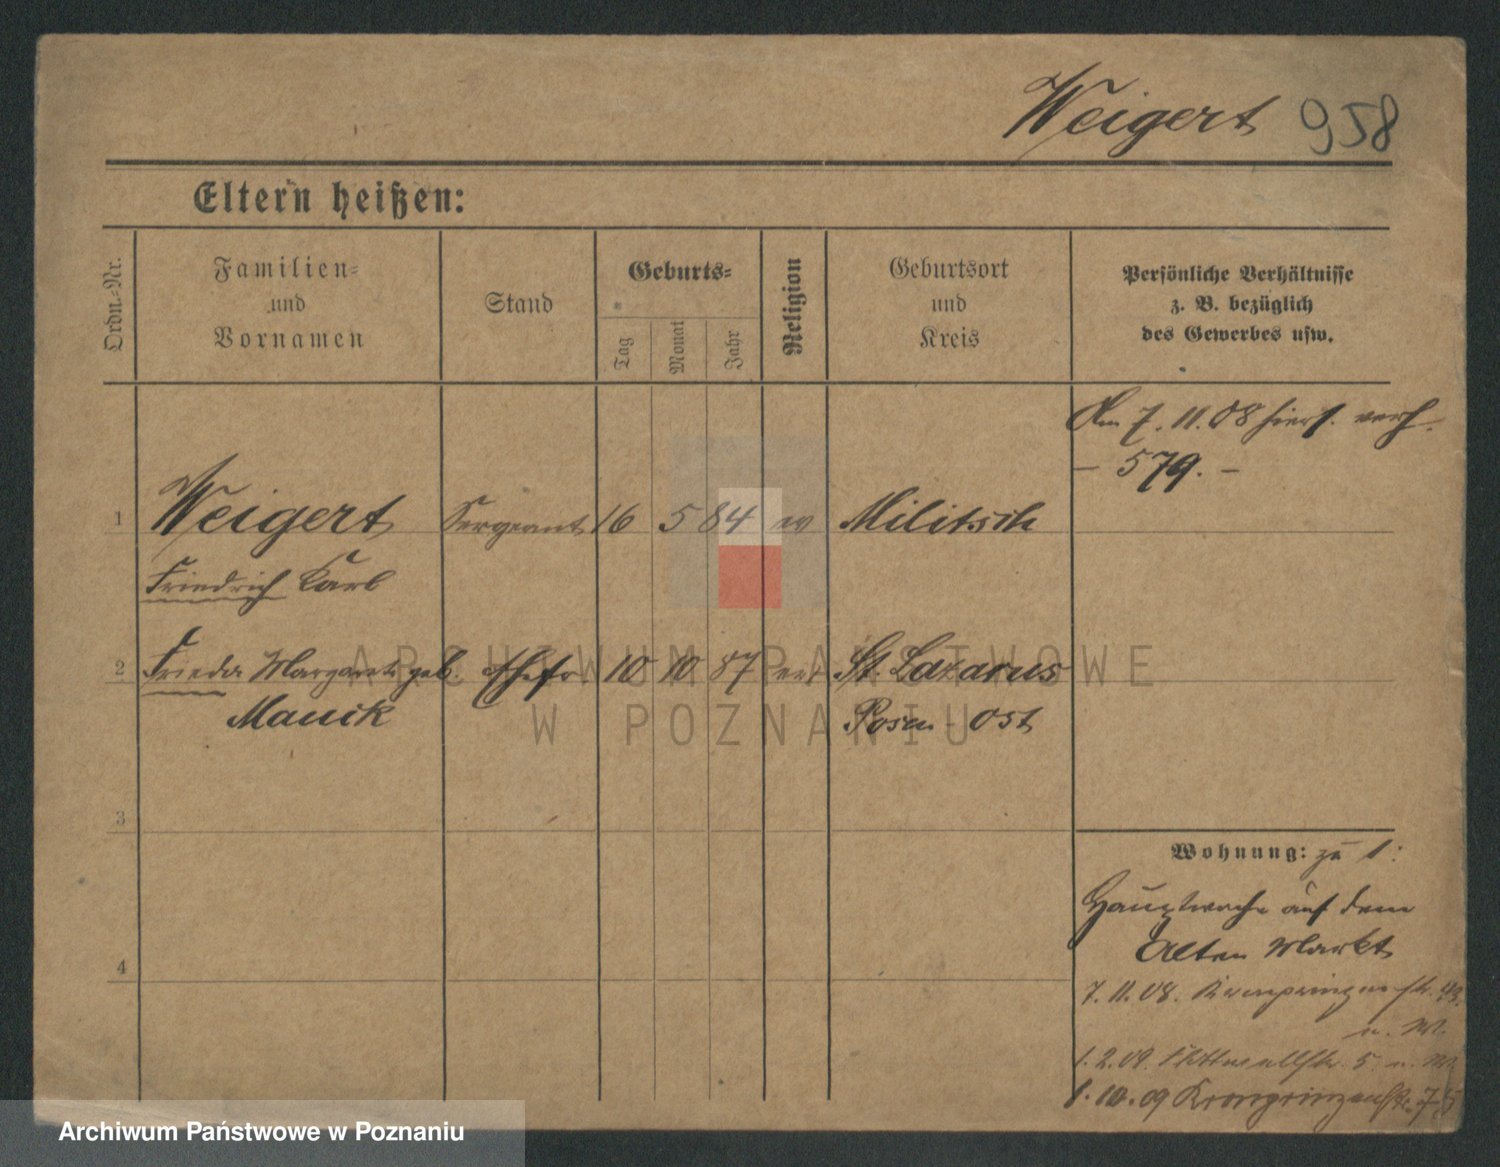 Weigert 958
Eltern heißen:
Ordn.-Nr.
Familien-
und
Vornamen
Stand
Geburts-
Tag
Monat
Jahr
Religion
Geburtsort
und
Kreis
Persönliche Verhältnisse
z. B. bezüglich
des Gewerbes usw.
Am 7.11.08 hiers. verh.
- 579. -
1 Weigert Sergeant 16 5 84 ev Militsch
Friedrich Karl
2 Frieda Margarete geb. Ehefr. 10 10 87 ev St. Lazarus
Mauck Posen-Ost
3
4
Wohnung: zu 1:
Hauptwache auf dem
Alten Markt
7.11.08. Kronprinzenstr.
1.2.09. 5
1.10.09 Kronprinzenstr.
ARCHIWUM PAŃSTWOWE
W POZNANIU
Archiwum Państwowe w Poznaniu